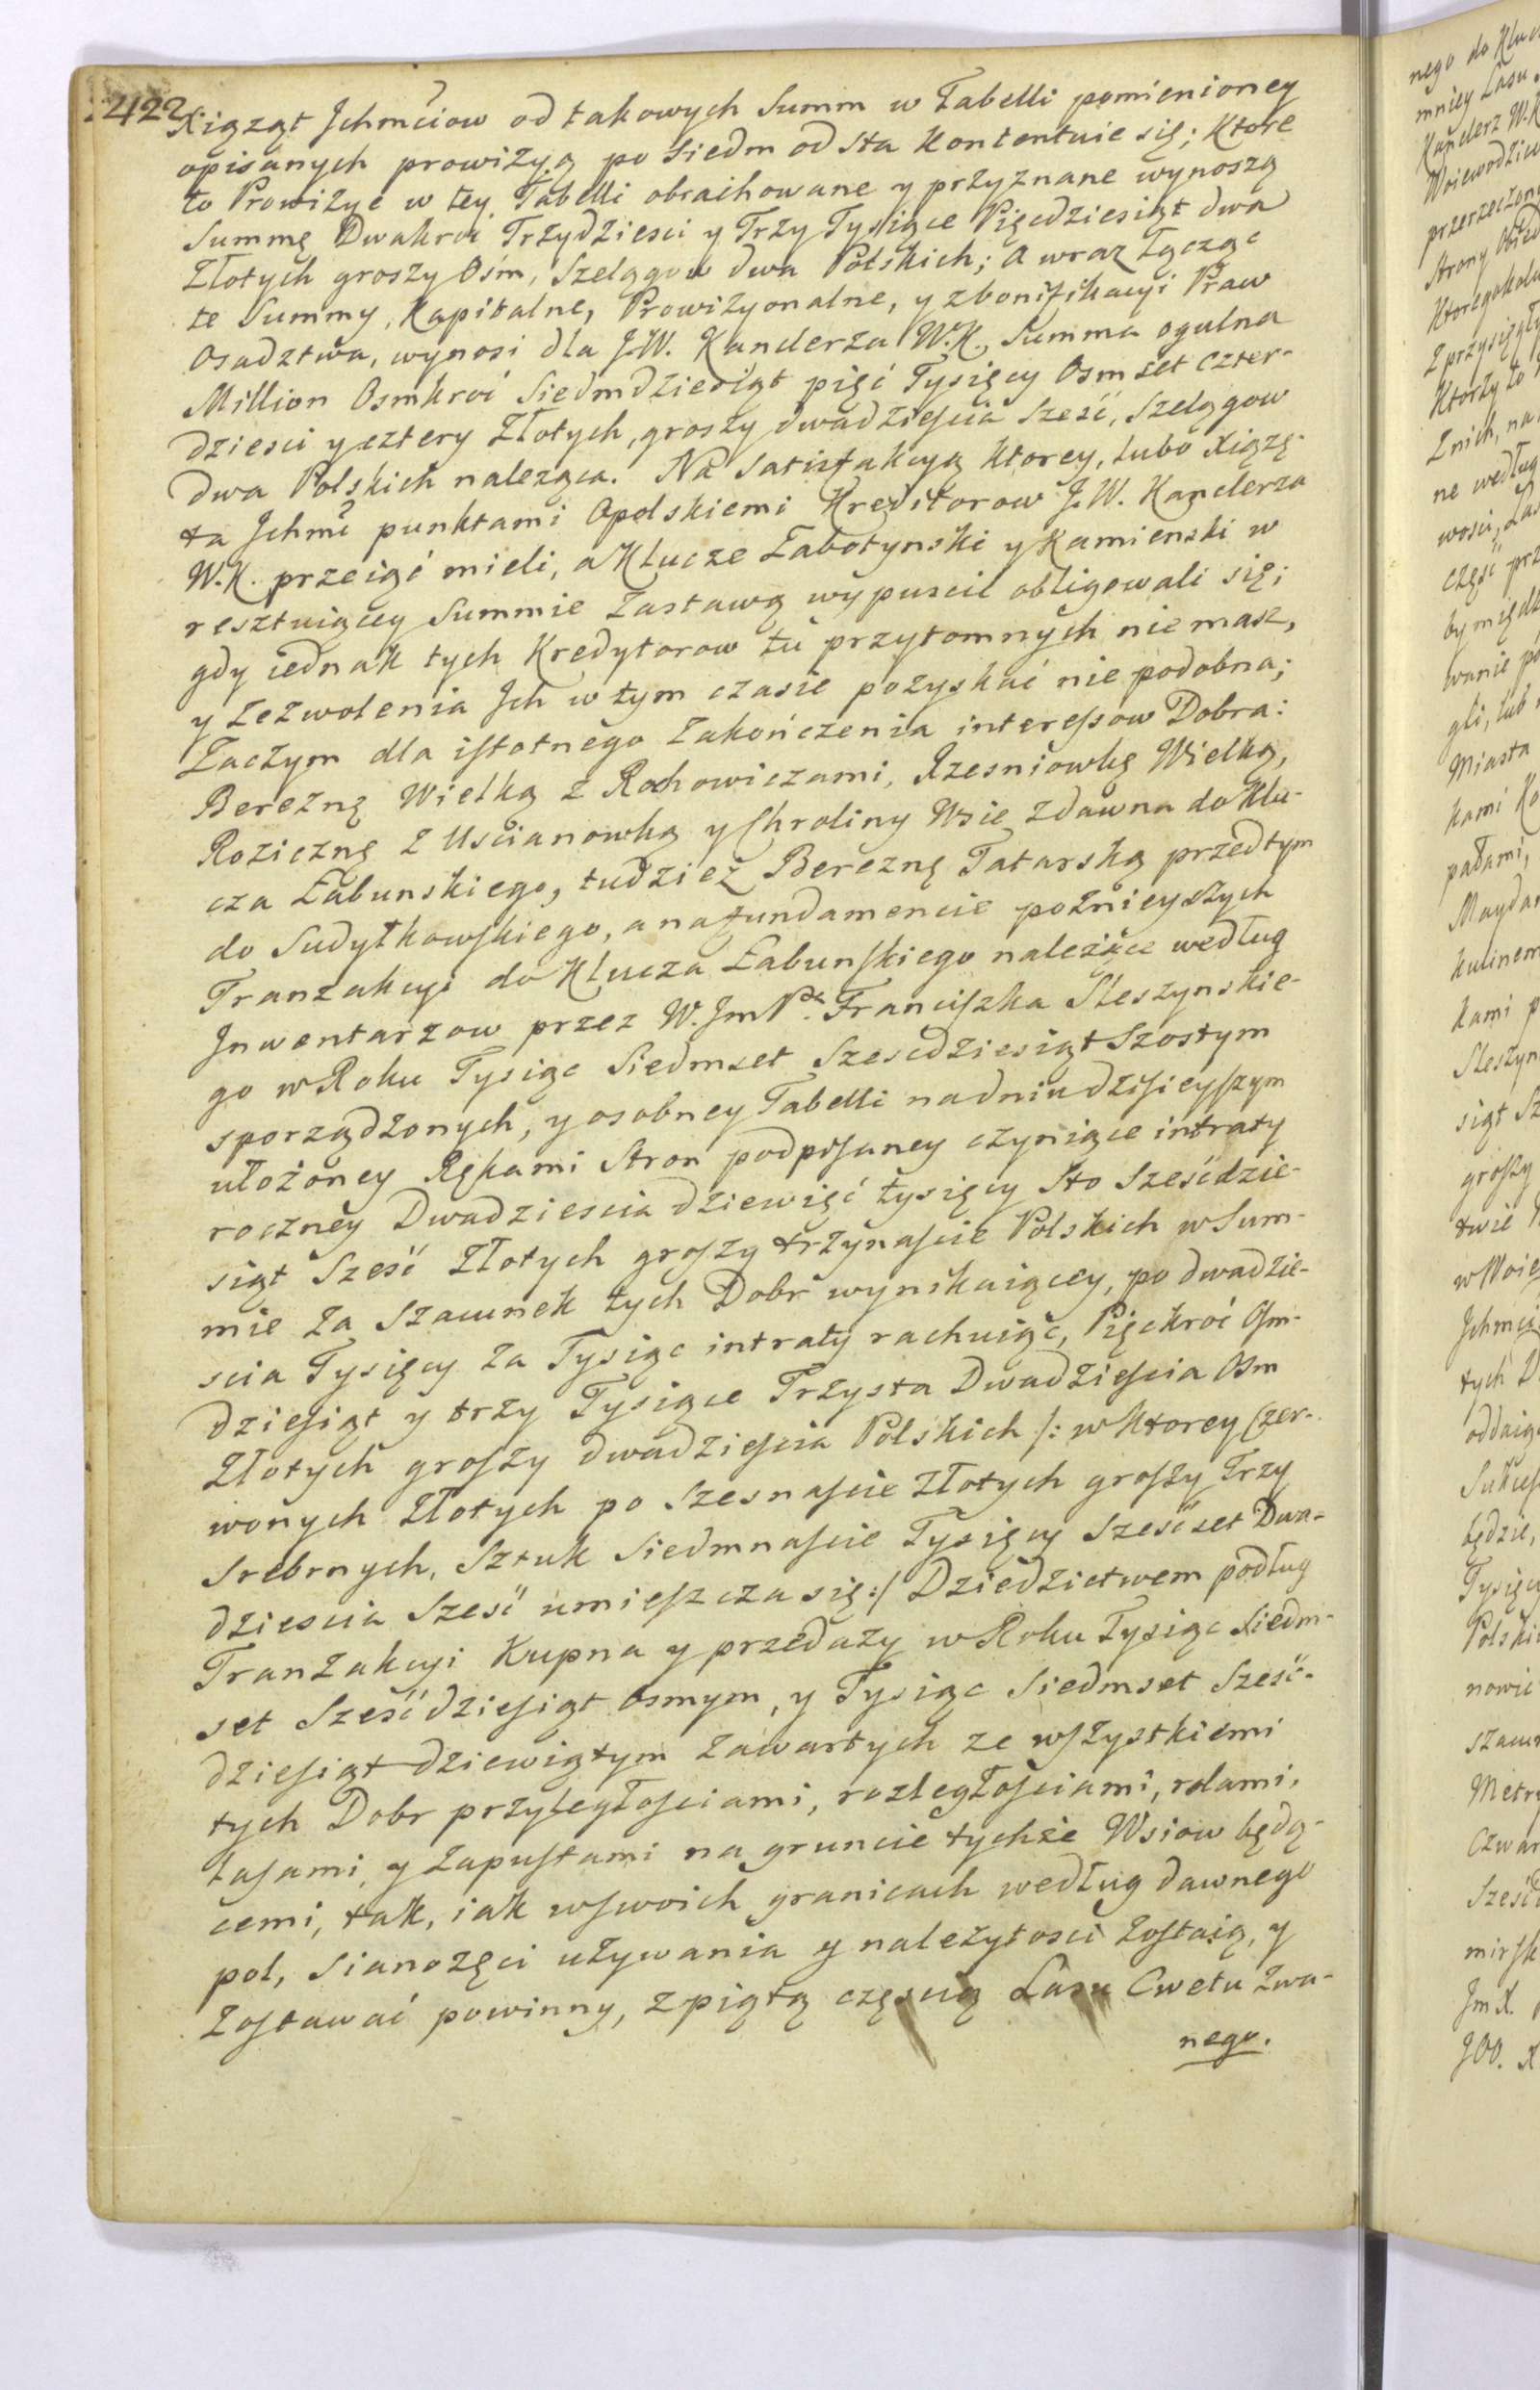 422
Xiążąt Jchmciow od takowych Summ w Tabelli pomienioney
opisanych prowizyą po siedm od sta kontentuie się; Ktore
to Prowizye w tey Tabelli obrachowane y przyznane wynoszą
Summę Dwakroć Trzydziesci y Trzy Tysiące Pięćdziesiąt dwa
Złotych groszy Ośm, Szelągow dwa Polskich; a wraz łącząc
te Summy, Kapitalne, Prowizyonalne, y zbonifikacyi Praw
Osadztwa, wynosi dla J.W. Kanclerza W.K., Summa ogulna
Million Osmkroć Siedmdziesiąt pięć Tysięcy Osmset czter-
dziesci y cztery Złotych, groszy dwadzieścia Sześć, Szelągow
dwa Polskich należąca. Na satisfakcyą ktorey, lubo Xiążę-
ta Jchmć punktami Opolskiemi Kreditorow J.W. Kanclerza
W.K. przeiąć mieli, a Klucze Łabotynski y Kamienski w
resztuiącey Summie Zastawą wypuscić obligowali się;
gdy iednak tych Kredytorow tu przytomnych nie masz,
y zezwolenia Jch w tym czasie pozyskać nie podobna;
Zaczym dla istotnego zakończenia interessow Dobra:
Berezną Wielką z Rohowiczami, Rzesniowkę Wielką,
Roziczną z Uscianowką y Chroliny Wsie zdawna do Klu-
cza Łabunskiego, tudzież Berezną Tatarską przedtym
do Sudyłkowskiego, a na fundamencie poźnieyszych
Tranzakcyi do Klucza Łabunskiego należące według
Jnwentarzow przez W. Jm Pa. Franciszka Sleszynskie-
go w Roku Tysiąc Siedmset Szescdziesiąt Szostym
sporządzonych, y osobney Tabelli na dniu dzisieyszym
ułożoney Rękami Stron podpisaney czyniące intraty
roczney Dwadziescia dziewięć tysięcy Sto Sześćdzie-
siąt Sześć Złotych groszy trzynaście Polskich w Sum-
mie za Szacunek tych Dobr wynikaiącey, po dwadzie-
scia Tysięcy za Tysiąc intraty rachuiąc, Pięćkroć Ośm-
dziesiąt y trzy Tysiące Trzysta Dwadzieścia Osm
Złotych groszy dwadzieścia Polskich /: w Ktorey Czer-
wonych Złotych po Szesnascie Złotych groszy Trzy
Srebrnych, Sztuk Siedmnaście Tysięcy Sześćset Dwa-
dziescia Sześć umieszcza się :/ Dziedzictwem podług
Tranzakcyi Kupna y przedaży w Roku Tysiąc Siedm-
set Sześćdziesiąt osmym, y Tysiąc Siedmset Sześć-
dziesiąt dziewiątym zawartych ze wszystkiemi
tych Dobr przyległościami, rozległościami, rolami,
lasami, y zapustami na gruncie tychże Wsiow będą-
cemi, tak, iak w swoich granicach według dawnego
pol, sianożęci używania y należytosci zostaią, y
zostawać powinny, z piątą częscią Lasu Cwetu zwa-
nego.